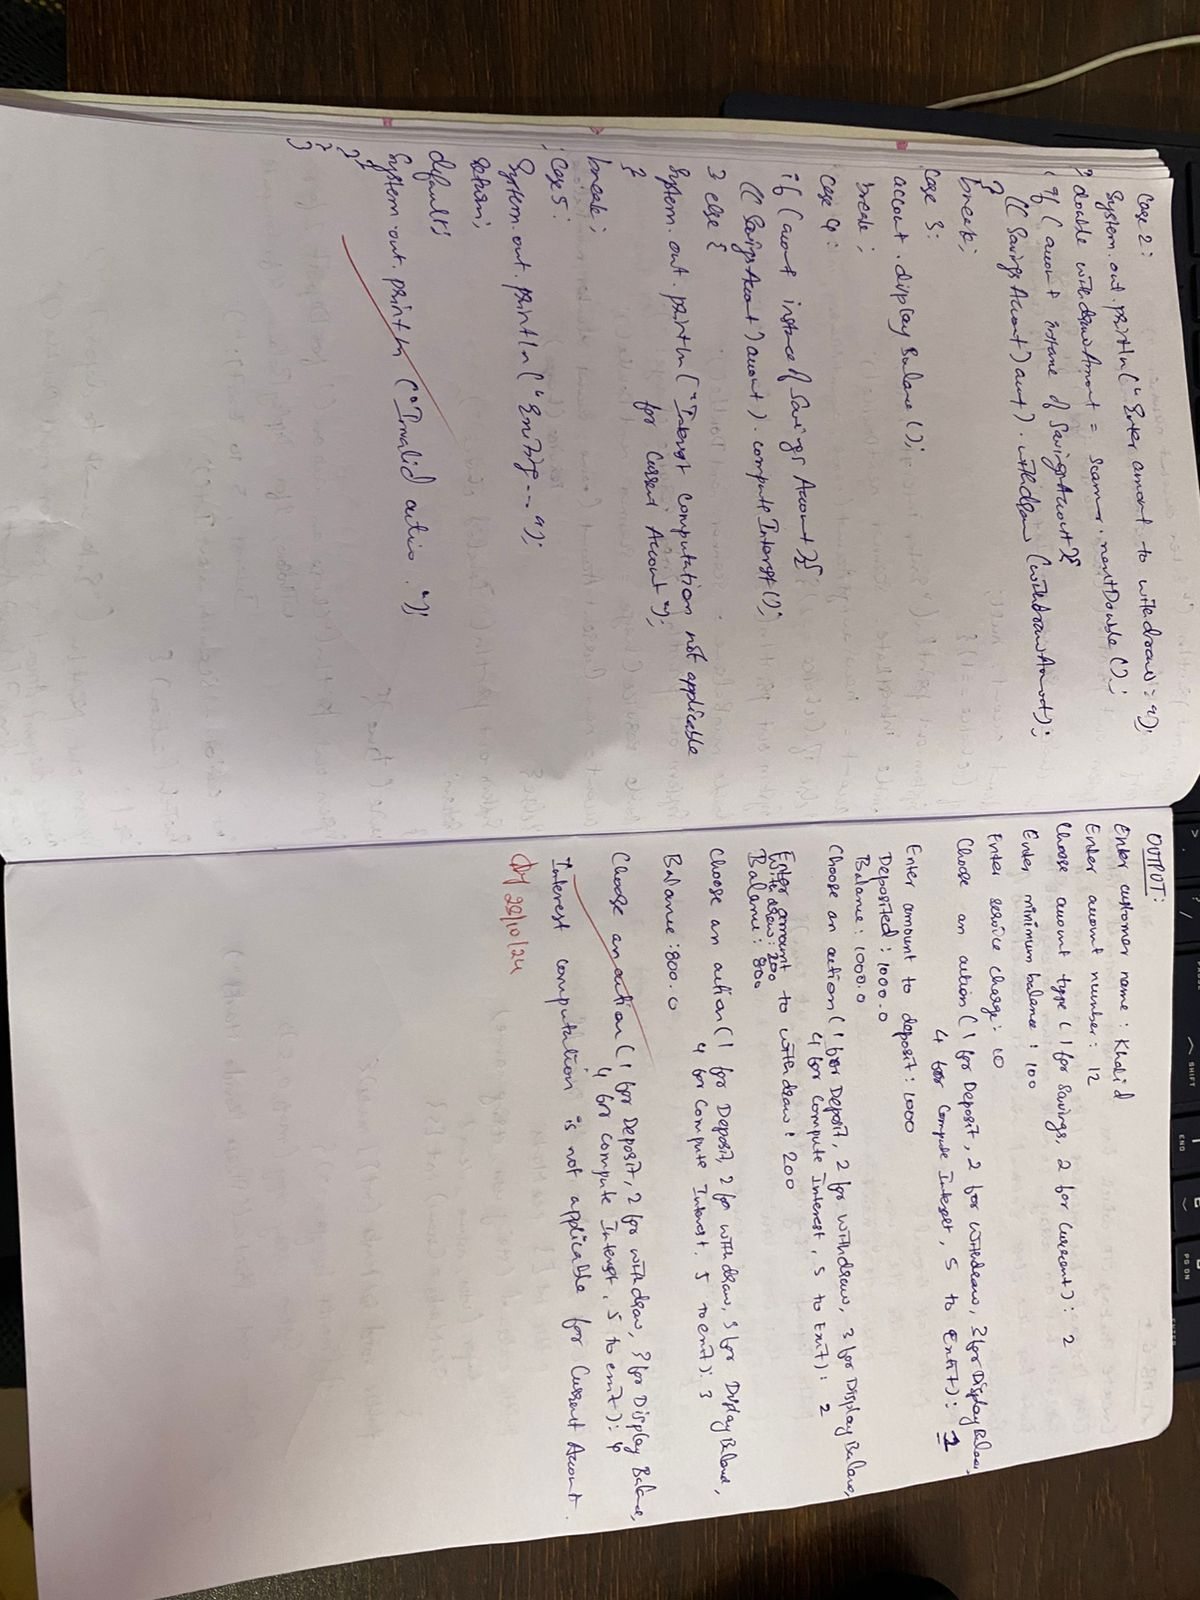 Case 2:
System.out.println("Enter amount to withdraw: ");
double withdrawAmount = scanner.nextDouble();
if (account instance of SavingsAccount){
((SavingsAccount) account).withdraw(withdrawAmount);
}
break;
Case 3:
account.displayBalance();
break;
case 4:
if (account instance of Savings Account){
((SavingsAccount) account).computeInterest();
} else {
System.out.println("Interest computation not applicable
for Current Account");
}
break;
Case 5:
System.out.println("Exiting...");
return;
default:
System.out.println("Invalid action.");
}
}
}
}
OUTPUT:
Enter customer name: Khalid
Enter account number: 12
Choose account type (1 for Savings, 2 for Current): 2
Enter minimum balance: 100
Enter service charge: 10
Choose an action (1 for Deposit, 2 for withdraw, 3 for Display Balance,
4 for Compute Interest, 5 to Exit): 1
Enter amount to deposit: 1000
Deposited: 1000.0
Balance: 1000.0
Choose an action (1 for Deposit, 2 for withdraw, 3 for Display Balance,
4 for Compute Interest, 5 to Exit): 2
Enter amount to withdraw: 200
Withdraw: 200
Balance: 800
Choose an action (1 for Deposit, 2 for withdraw, 3 for Display Balance,
4 for Compute Interest, 5 to exit): 3
Balance: 800.0
Choose an action (1 for Deposit, 2 for withdraw, 3 for Display Balance,
4 for Compute Interest, 5 to exit): 4
Interest computation is not applicable for Current Account.
28/10/24
SHIFT
END
PG DN